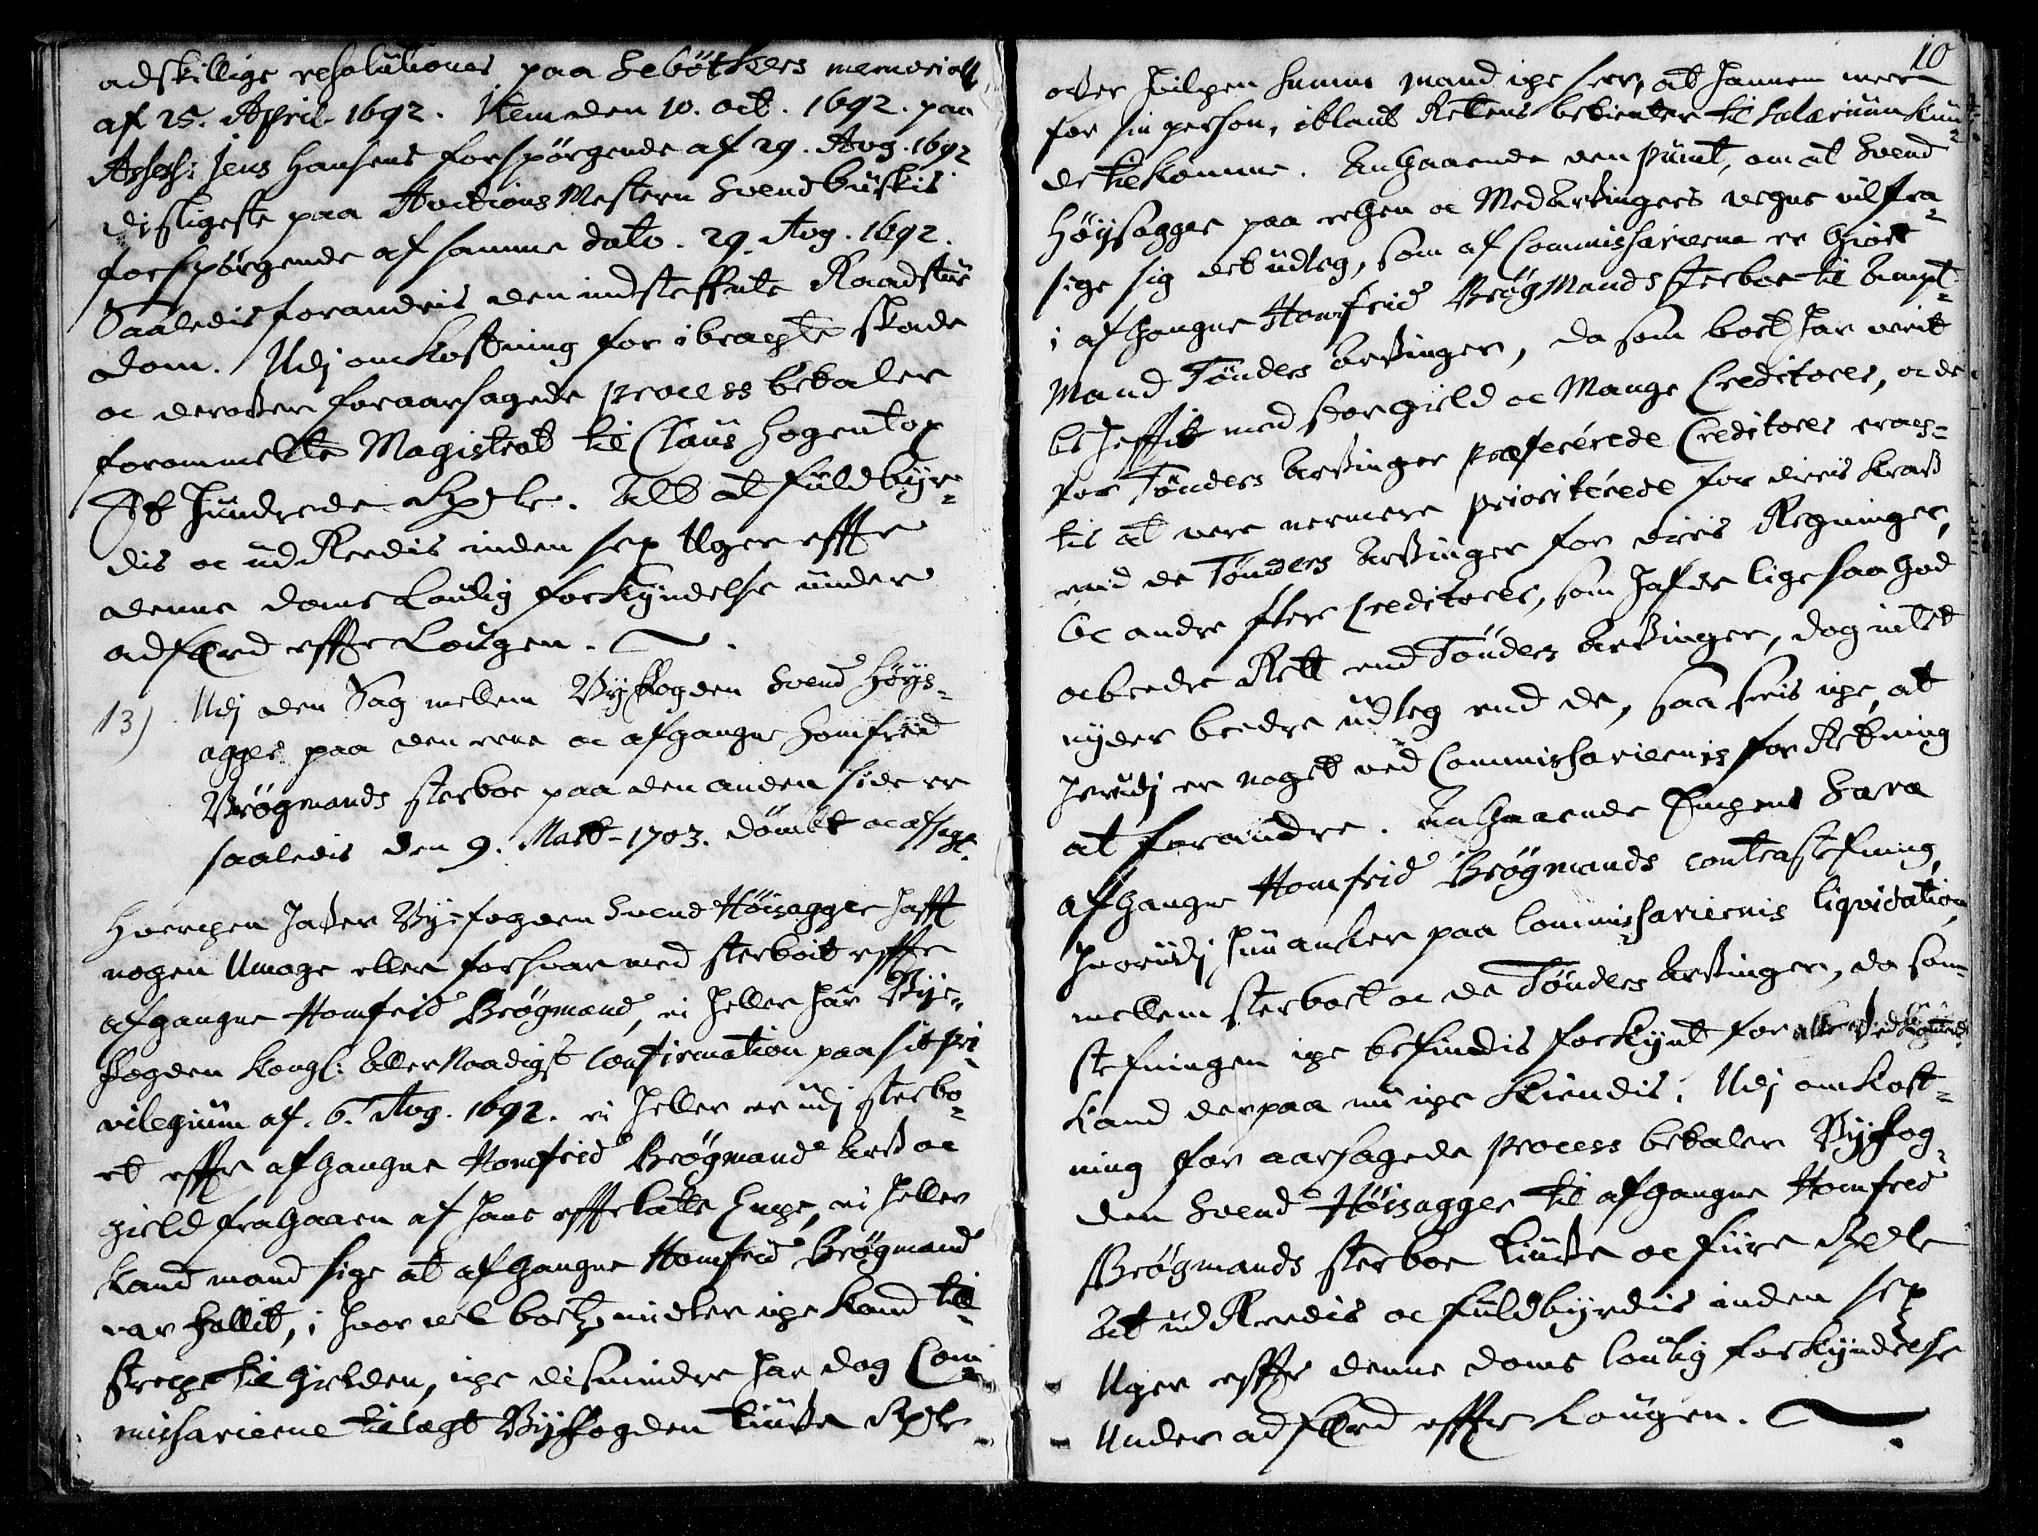 adskillige resolutioner paa Sebötkers memorial
af 25. April 1692. Item den 10. oct. 1692. paa
Assess: Jens Hansens forspörgende af 29. Aug. 1692
disligeste paa Auctions Mestern Svend buskis
forspörgende af samme dato. 29. Aug. 1692.
Saaledis forandris den indsteffnte Raadstue
dom. Udj omkostning for ibragte skade
oc derofver foraarsagede process betaler
forommelte Magistrat til Claus Hogentop
Et hundrede Rixdlr. Alt at fuldbyr-
dis oc ud Reedis inden sex Uger effter
denne doms Loulig forkyndelse under
adferd effter Lougen.
13) Udj den Sag mellem Byfogden Svend Høys-
agger paa den eene oc afgangne Homfreid
Brøgmands sterboe paa den anden side er
saaledis den 9. Martt. 1703. dömbt oc afsagt.
Hvercken hafver Byefogden Svend Høisagger hafft
nogen Umage eller forsvar med sterboit effter
afgangne Homfreid Brøgmand, ei heller har Bye-
fogden kongl: AllerNaadigst Confirmation paa sit pri-
vilegium af. 6. Aug. 1692. ei heller er udj sterbo-
et effter afgangne Homfreid Brøgmand Arf oc
gield fragaaen af hans effterlatte Enge, ei heller
kand mand sige at afgangne Homfreid Brøgmand
var fallit, i hvor vel boets midler ige kand till
strecke til gielden, ige dismindre har dog Com-
missarierne tilagt Byfogden tiufve Rixdlr
10
ofver hvilgen Summa mand ige seer, at hannem meere
for sin person, iblant Rettens betienter til Salarium kun-
de tilkomme. Angaaende den punct, om at Svend
Høysagger paa egen oc Medarfvingers vegne vil fra-
sige sig det udleg, som af Commissarierne er giort
i afgangne Homfreid Brøgmands Sterboe til Ampt-
mand Tönders Arfvinger, da som boet har verit
behefftet med stor gield oc Mange Creditorer, oc de
for Tönders Arfvinger præfererede Creditorer erag-
tis at vere nermere prioriterede for deris kraf
end de Tönders Arfvinger for deris Regninger,
Oc andre flere Creditorer, som hafde lige saa god
oc beedre Rett end Tönders Arfvinger, dog intet
nyder beedre udleg end de, saa sees ige, at
herudj er noget ved Commissariernis forRetning
at forandre. Angaaende Engens Sara
afgangne Homfreid Brøgmands contrastefning,
hvorudj hun ancker paa Commissariernis liqvidation
mellem sterboet oc de Tönders Arfvinger, da som
stefningen ige befindis forkynt for alle Vedkommende
kand derpaa nu ige kiendis. Udj omkost-
ning for aarsagede process betaler Byfog-
den Svend Høisagger til afgangne Homfreid
Brøgmands sterboe tiufve oc fiire Rixdlr
At ud Reedis oc fuldbyrdis inden sex
Uger effter denne doms loulig forkyndelse
Under adferd effter Lougen.